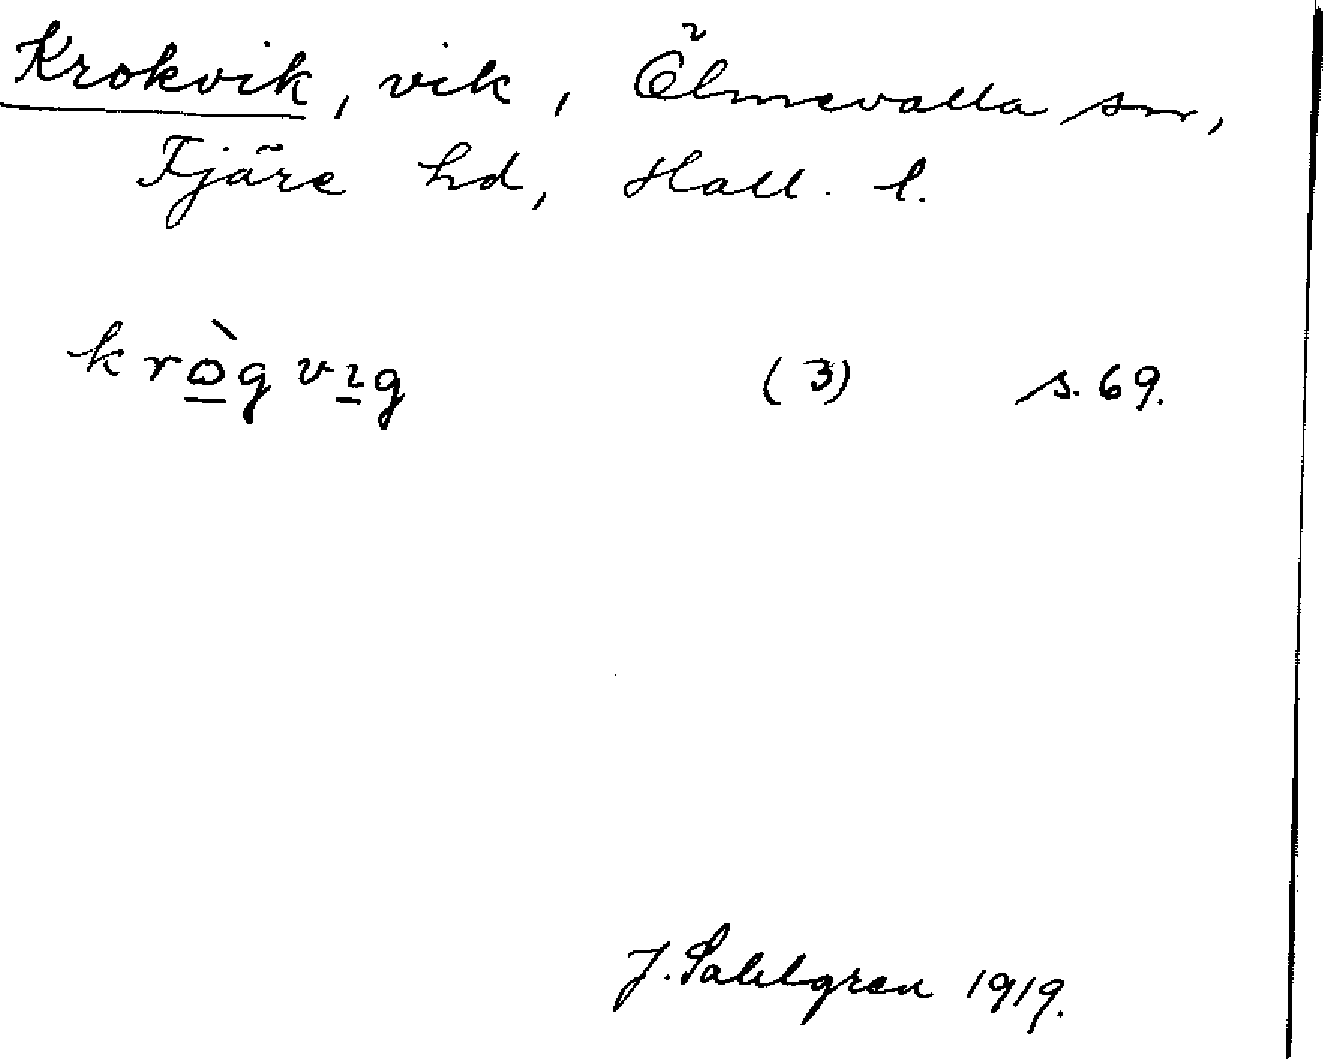 Krokvik, vik, Ölmevalla sn,
Fjäre hd, Hall. l.
krògvıg (3) s. 69.
J. Sahlgren 1919.